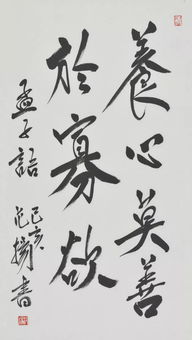 養心莫善
於寡欲
孟子語
己亥
范擳書